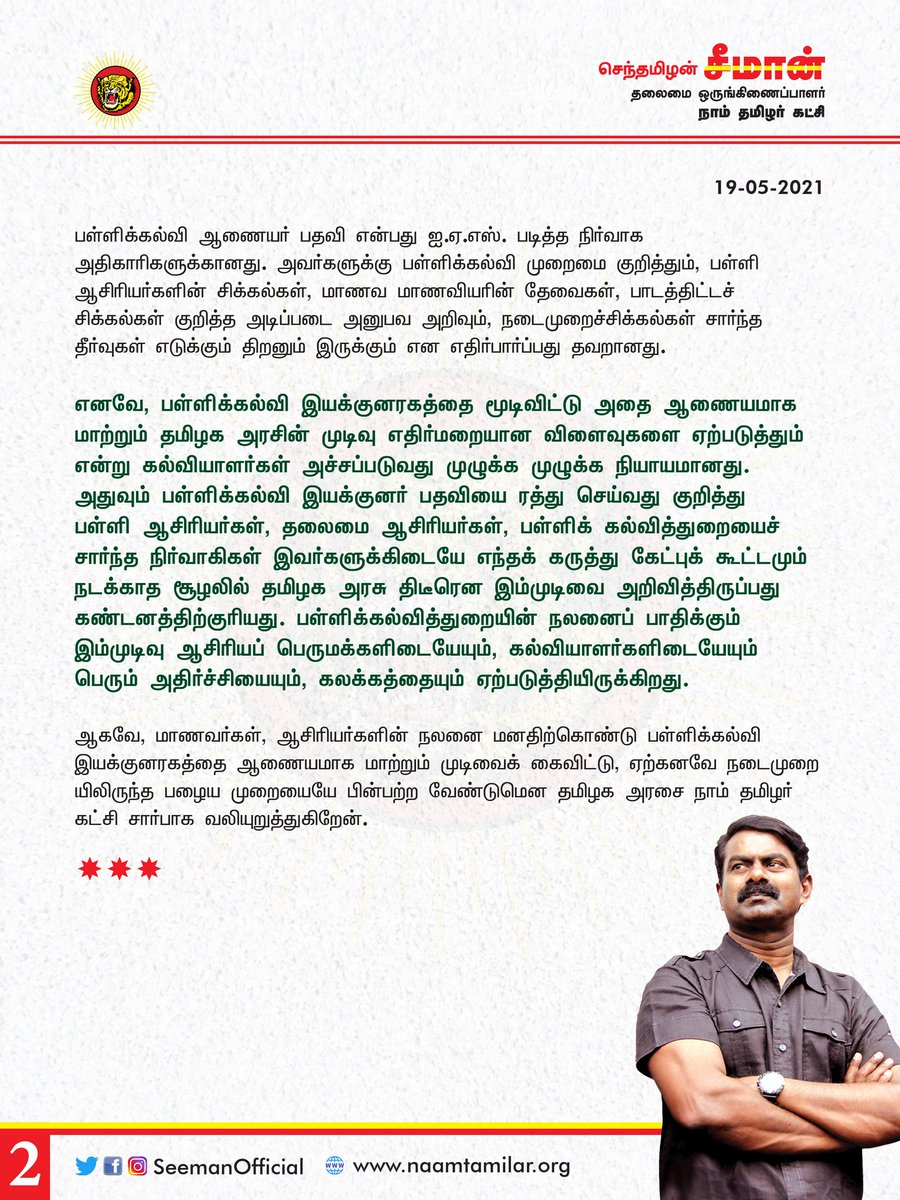 செந்தமிழன் சீமான்
தலைமை ஒருங்கிணைப்பாளர்
நாம் தமிழர் கட்சி
19-05-2021
பள்ளிக்கல்வி ஆணையர் பதவி என்பது ஐ.ஏ.எஸ். படித்த நிர்வாக
அதிகாரிகளுக்கானது. அவர்களுக்கு பள்ளிக்கல்வி முறைமை குறித்தும், பள்ளி
ஆசிரியர்களின் சிக்கல்கள், மாணவ மாணவியரின் தேவைகள், பாடத்திட்டச்
சிக்கல்கள் குறித்த அடிப்படை அனுபவ அறிவும், நடைமுறைச்சிக்கல்கள் சார்ந்த
தீர்வுகள் எடுக்கும் திறனும் இருக்கும் என எதிர்பார்ப்பது தவறானது.
எனவே, பள்ளிக்கல்வி இயக்குனரகத்தை மூடிவிட்டு அதை ஆணையமாக
மாற்றும் தமிழக அரசின் முடிவு எதிர்மறையான விளைவுகளை ஏற்படுத்தும்
என்று கல்வியாளர்கள் அச்சப்படுவது முழுக்க முழுக்க நியாயமானது.
அதுவும் பள்ளிக்கல்வி இயக்குனர் பதவியை ரத்து செய்வது குறித்து
பள்ளி ஆசிரியர்கள், தலைமை ஆசிரியர்கள், பள்ளிக் கல்வித்துறையைச்
சார்ந்த நிர்வாகிகள் இவர்களுக்கிடையே எந்தக் கருத்து கேட்புக் கூட்டமும்
நடக்காத சூழலில் தமிழக அரசு திடீரென இம்முடிவை அறிவித்திருப்பது
கண்டனத்திற்குரியது. பள்ளிக்கல்வித்துறையின் நலனைப் பாதிக்கும்
இம்முடிவு ஆசிரியப் பெருமக்களிடையேயும், கல்வியாளர்களிடையேயும்
பெரும் அதிர்ச்சியையும், கலக்கத்தையும் ஏற்படுத்தியிருக்கிறது.
ஆகவே, மாணவர்கள், ஆசிரியர்களின் நலனை மனதிற்கொண்டு பள்ளிக்கல்வி
இயக்குனரகத்தை ஆணையமாக மாற்றும் முடிவைக் கைவிட்டு, ஏற்கனவே நடைமுறை
யிலிருந்த பழைய முறையையே பின்பற்ற வேண்டுமென தமிழக அரசை நாம் தமிழர்
கட்சி சார்பாக வலியுறுத்துகிறேன்.
2 SeemanOfficial www.naamtamilar.org